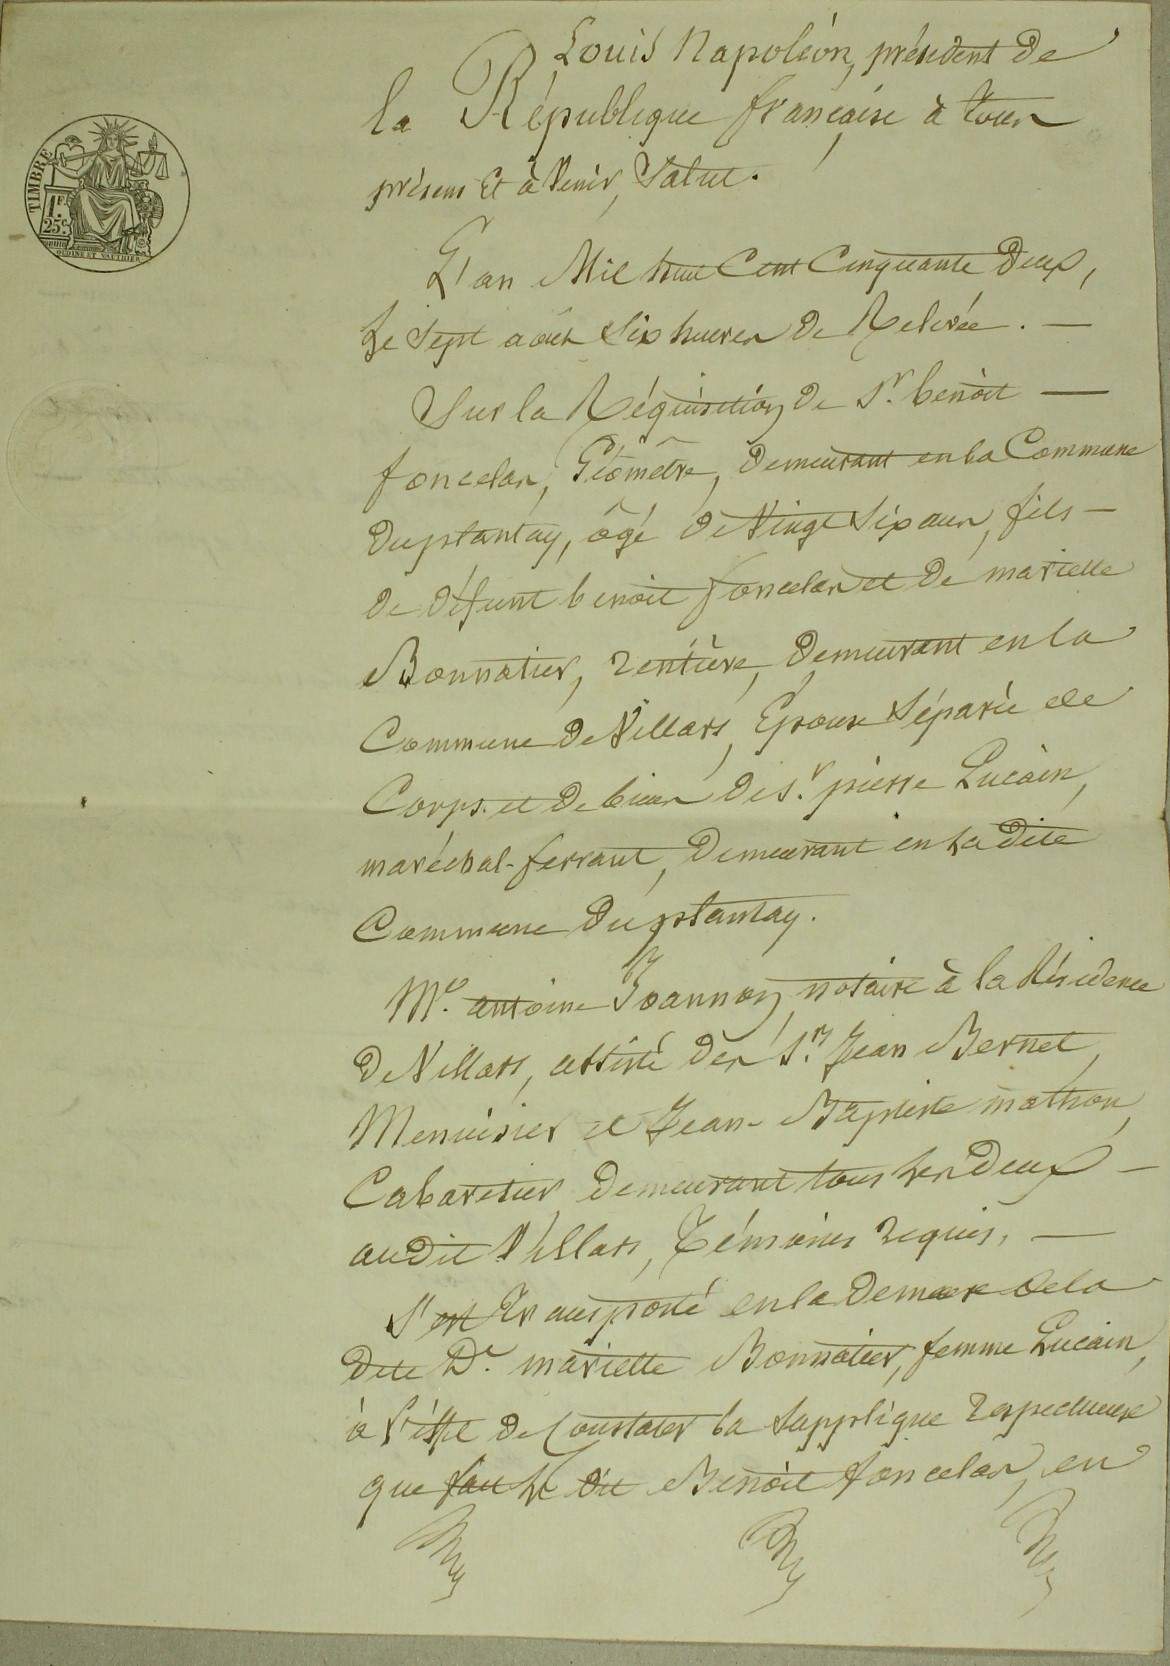 Louis Napoléon, président de
la République française à tous
présens et à venir, Salut.
TIMBRE
1F.
25c.
OUDINE ET VAUTHIER
L'an Mil huit Cent Cinquante Deux,
Le Sept août Six heures de Relevée. —
Sur la Réquisition de Sr. benoit —
foncelas, Géomètre, demeurant en la Commune
Duplantay, âgé de Vingt Six ans, fils —
de défunt benoit foncelas et de mariette
Bonnatier, rentière, demeurant en la
Commune de Villars, Epouse Séparée de
Corps et de biens de sr. pierre Lucain,
maréchal-ferrant, demeurant en la dite
Commune Duplantay.
Me. antoine Joannon, notaire à la Résidence
de Villars, assisté des Srs. Jean Bernet,
Menuisier et Jean-Baptiste mathon,
Cabaretier, demeurant tous les deux —
audit Villars, Témoins requis, —
S'est transporté en la demeure de la
dite De. mariette Bonnatier, femme Lucain,
à l'effet de Constater la Supplique respectueuse
que fait le dit Benoit foncelas, en